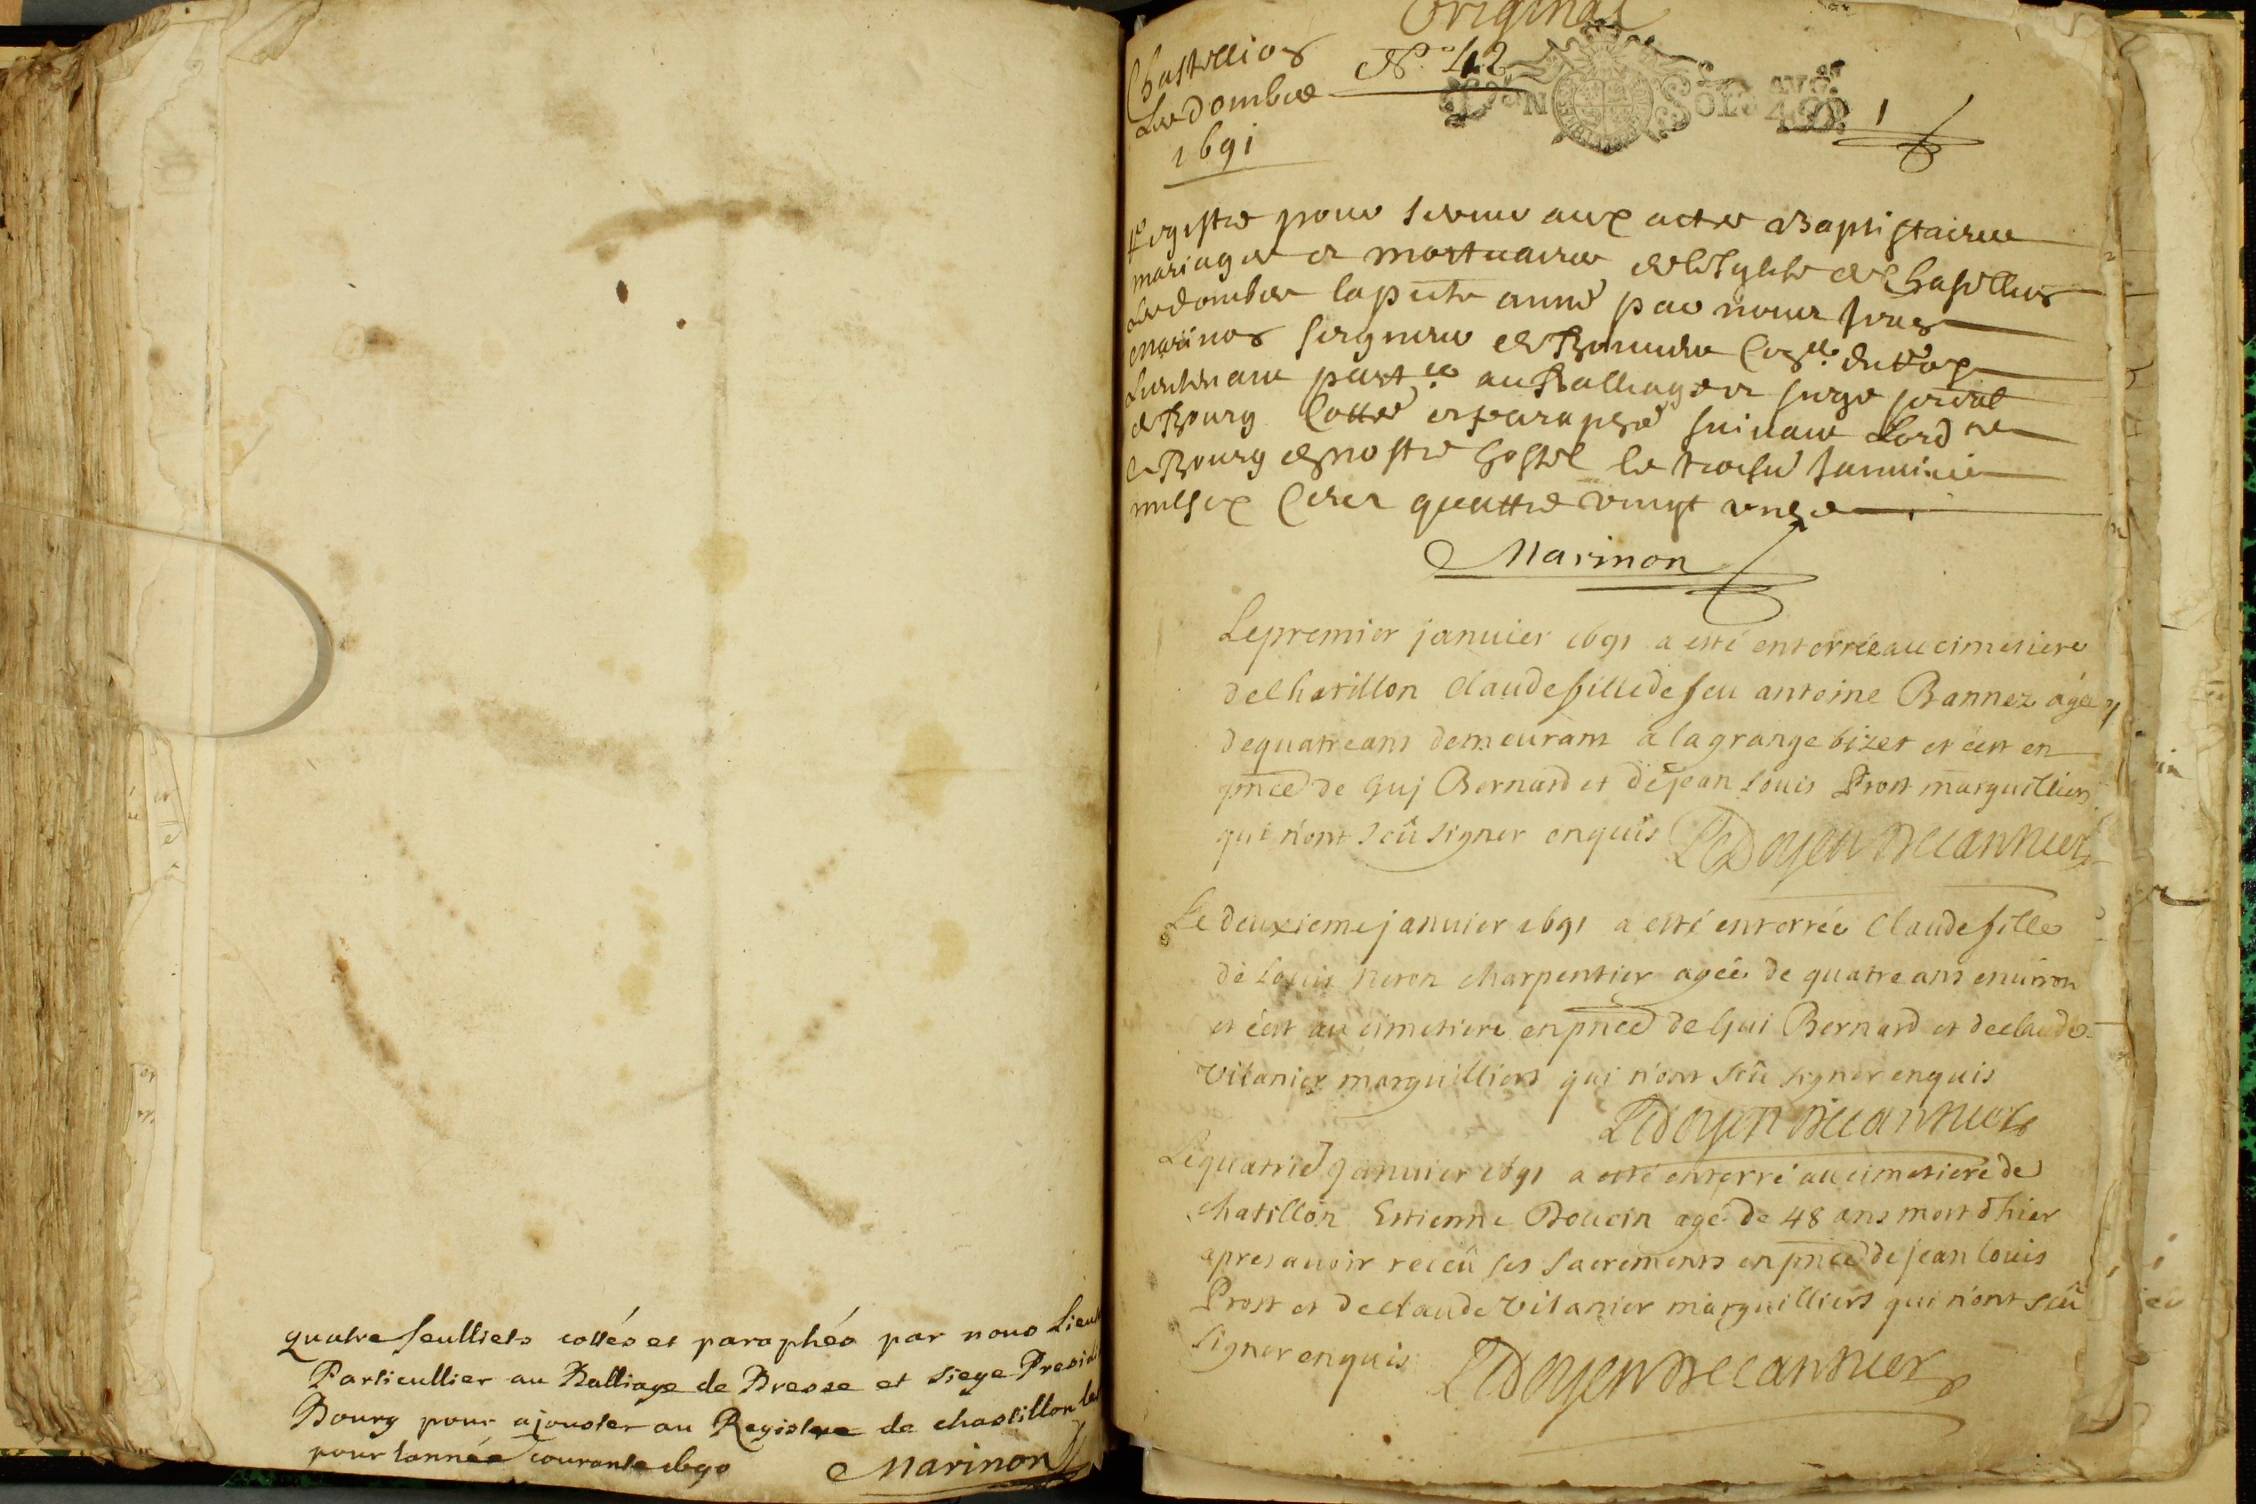 quatre feulliets cottés et paraphés par nous Lieut
Particullier au Balliage de Bresse et siege Presid
Bourg pour ajouster au Registre de chastillon les
pour lannée courante 1690 Marinon
Original
Chastillon N.º 42
Les dombes GEN SOLS AVG. 1
1691
Registre pour servir aux actes Baptistaires
mariages et mortuaires de leglise de Chastillon
Lesdombes la pnte année par nous
Marinon seigneur de Con.er du Roy
Lieutenant part.er au Balliage et siege
de Bourg Cotté et paraphé suivant Lord.ce
A Bourg en nostre hostel le janvier
mil six Cents quattre vingt unze
Marinon
Le premier januier 1691 a esté enterrée au cimetiere
de Chatillon Claude fille de feu antoine Bannez agée
de quatre ans demeurant a la grange bizet et c'est en
pnce de Guj Bernard et de jean louis Prost marguilliers
qui n'ont sçû signer enquis LeDoyen
Le deuxieme januier 1691 a esté enterrée Claude fille
de Louis neron charpentier agée de quatre ans enuiron
et c'est au cimetiere en pnce de Gui Bernard et de claude
Vitanier marguilliers qui n'ont sçû signer enquis
LeDoyen
Le quatrie januier 1691 a esté enterré au cimetiere de
chatillon Estienne Doucin agé de 48 ans mort d'hier
apres auoir receû ses sacrements en pnce de jean louis
Prost et de claude Vitanier marguilliers qui n'ont sçû
signer enquis LeDoyen